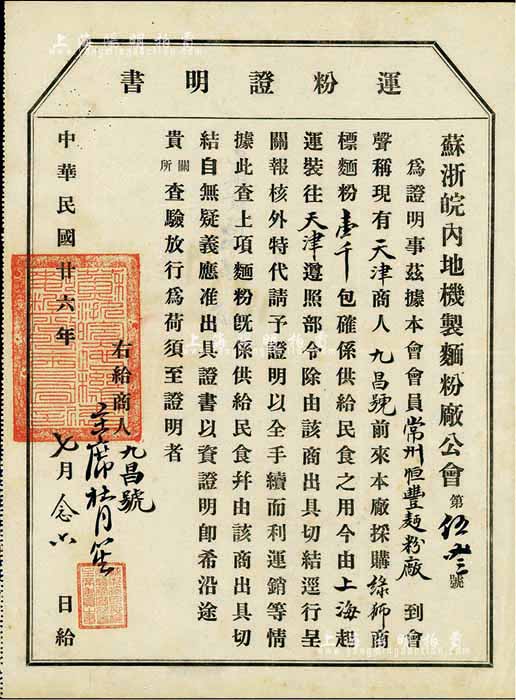 運粉證明書
蘇浙皖內地機製麵粉廠公會 第伍號
為證明事茲據本會會員常州恒豐麵粉廠 到會
聲稱現有天津商人九昌號前來本廠採購綠獅商
標麵粉壹千包確係供給民食之用今由上海起
運裝往天津遵照部令除由該商出具切結逕行呈
關報核外特代請予證明以全手續而利運銷等情
據此查上項麵粉旣係供給民食幷由該商出具切
結自無疑義應准出具證書以資證明卽希沿途
貴關所查驗放行為荷須至證明者
右給商人九昌號
主席杜月笙
中華民國廿六年七月念六日給